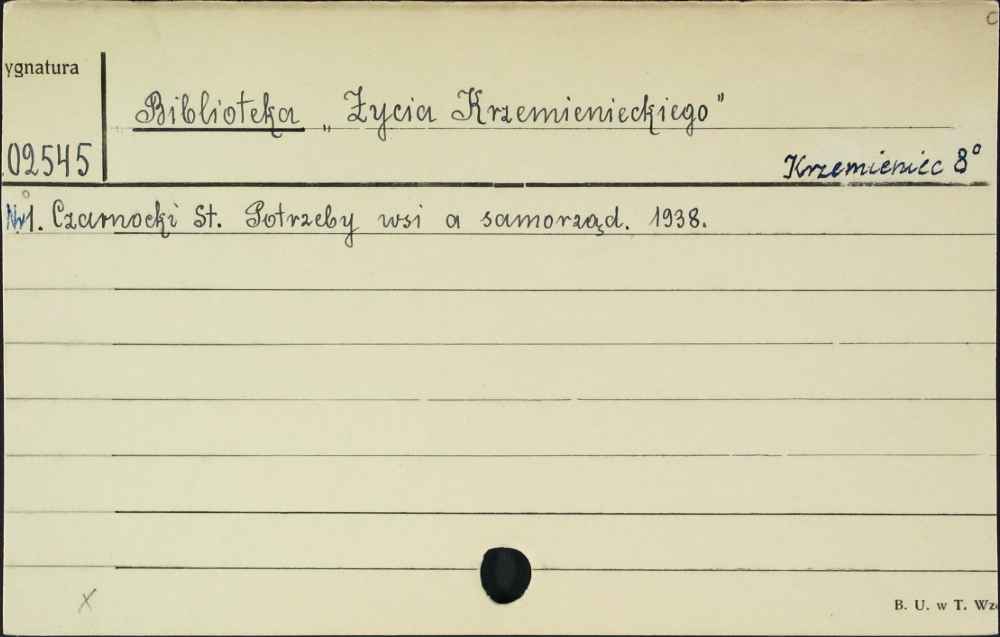 ygnatura
Biblioteka „Życia Krzemienieckiego”
02545
Krzemieniec 8°
Nr 1. Czarnocki St. Potrzeby wsi a samorząd. 1938.
x
B. U. w T. Wz